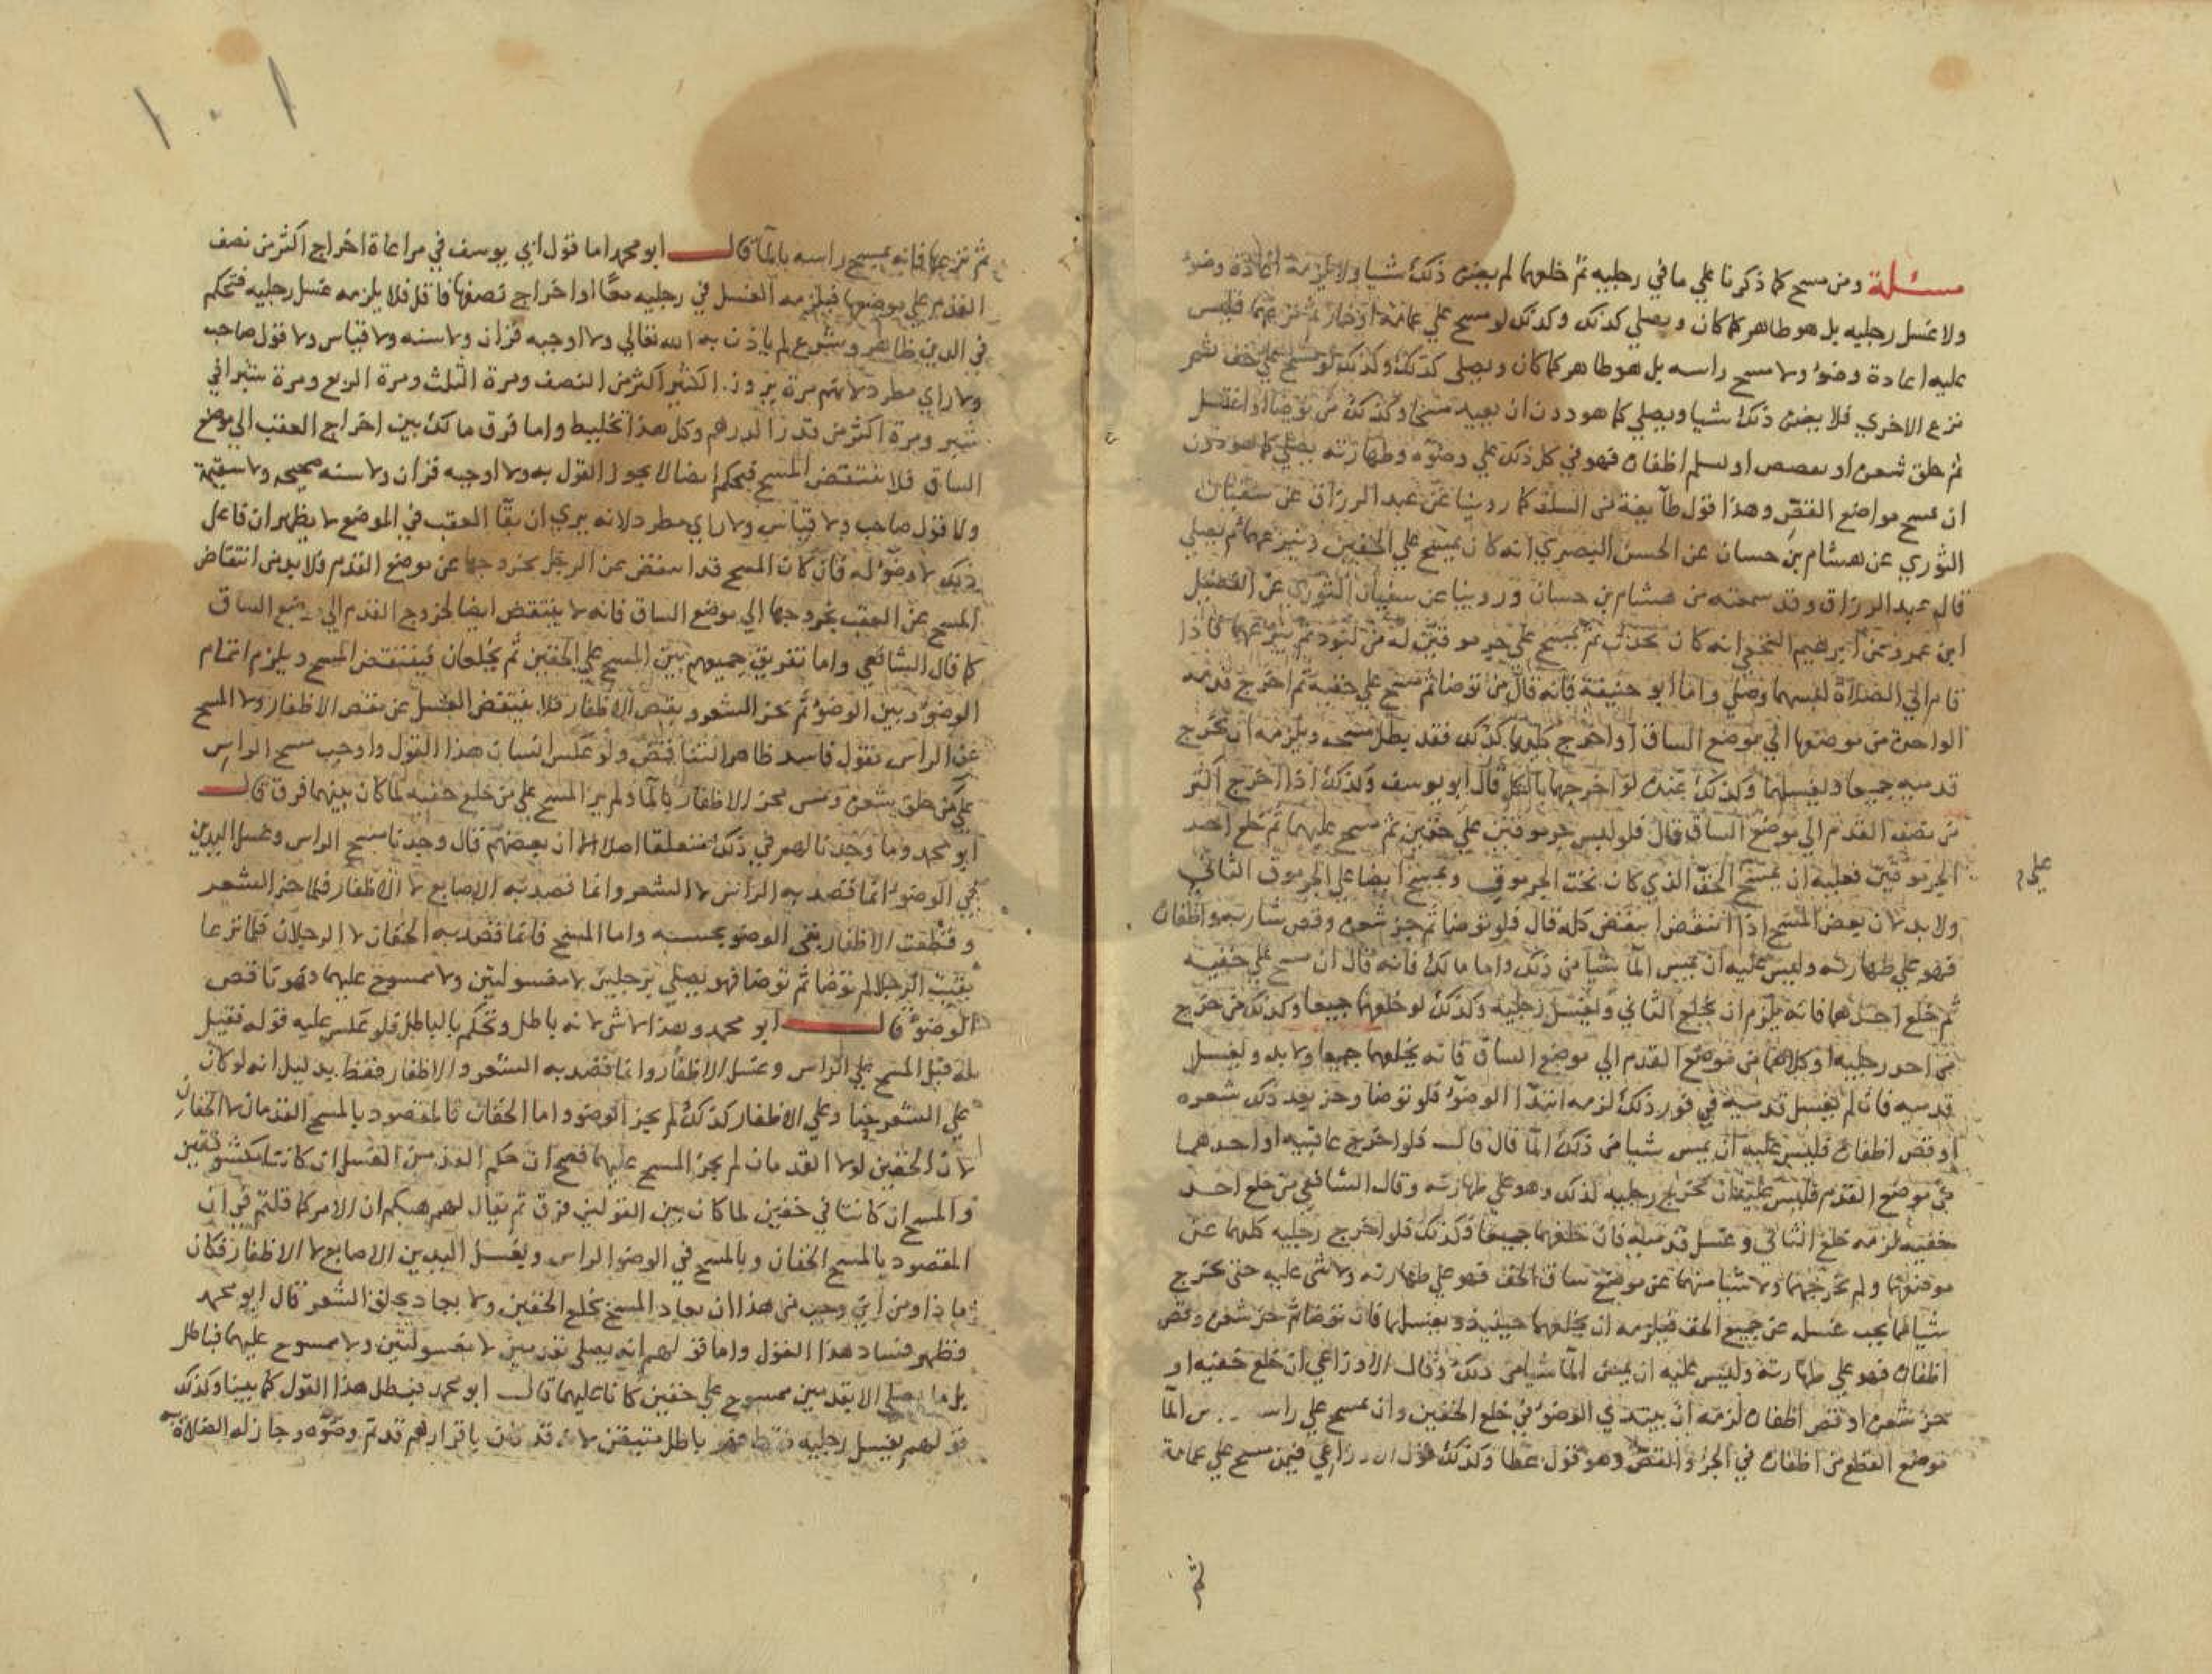 مسئلة ومن مسح كما ذكرنا علي ما في رجليه ثم خلعهما لم يضره ذلك شيا ولا يلزمه اعادة وضوء
ولا غسل رجليه بل هو طاهر كما كان ويصلي كذلك وكذلك لو مسح علي عمامة او خمار ثم نزعهما فليس
عليه اعادة وضوء ولا مسح راسه بل هو طاهر كما كان ويصلي كذلك وكذلك لو مسح علي خف ثم
نزع الاخري فلا يضره ذلك شيا ويصلي كما هو دون ان يعيد مسحا وكذلك من توضا او اغتسل
ثم حلق شعره او تقصص او قلم اظفاره فهو في كل ذلك علي وضوه وطهارته يصلي كما هو دون
ان يمسح مواضع القص وهذا قول طآيفة من السلف كما روينا عن عبد الرزاق عن سفيان
الثوري عن هشام بن حسان عن الحسن البصري انه كان يمسح علي الخفين وينزعهما ثم يصلي
قال عبد الرزاق وقد سمعته من هشام بن حسان وروينا عن سفيان الثوري عن الفضيل
ابن عمرو عن ابرهيم النخعي انه كان يحدث ثم يمسح علي جرموقين له من لبود ثم ينزعهما فاذا
قام الي الصلاة لبسهما وصلي واما ابو حنيفة فانه قال من توضا ثم مسح علي خفيه ثم اخرج قدمه
الواحدة من موضعها الي موضع الساق او اخرج كليهما كذلك فقد بطل مسحه ويلزمه ان يخرج
قدميه جميعا ويغسلهما وكذلك عنده لو اخرجهما بالكل قال ابو يوسف وكذلك اذا اخرج اكثر
من نصف القدم الي موضع الساق قال فلو لبس جرموقين علي خفين ثم مسح عليهما ثم خلع احد
الجرموقين فعليه ان يمسح الخف الذي كان تحت الجرموق ويمسح ايضا علي الجرموق الثاني
علي
ولا بد لان بعض المسح اذا انتقض انتقض كله قال فلو توضا ثم جز شعره وقص شاربه واظفاره
فهو علي طهارته وليس عليه ان يمس المآ شيا من ذلك واما مالك فانه قال ان مسح علي خفيه
ثم خلع احدهما فانه يلزم ان يخلع الثاني ويغسل رجليه وكذلك لو خلعهما جميعا وكذلك من اخرج
من احد رجليه او كلاهما من موضع القدم الي موضع الساق فانه يخلعهما جميعا ولا بد ويغسل
قدميه فان لم يغسل قدميه في فور ذلك لزمه ابتدآ الوضوء فلو توضا وجز بعد ذلك شعره
او قص اظفاره فليس عليه ان يمس شيا من ذلك المآ قال قالـ فلو اخرج عاقبيه او احدهما
من موضع القدم فليس عليه ان يخرج رجليه لذلك وهو علي طهارته وقال الشافعي من خلع احد
خفيه لزمه خلع الثاني وغسل قدميه فان خلعهما جميعا فكذلك فلو اخرج رجليه كلهما عن
موضعهما ولم يخرجهما ولا شيا منهما عن موضع ساق الخف فهو علي طهارته ولا شي عليه حتي يخرج
شيا مما يجب غسله عن جميع الخف فيلزمه ان يخلعهما حينيذ ويغسلهما فان توضا ثم جز شعره وقص
اظفاره فهو علي طهارته وليس عليه ان يمس المآ شيا من ذلك وقال الاوزاعي ان خلع خفيه او
جز شعره او قص اظفاره لزمه ان يبتدي الوضوء في خلع الخفين وان يمسح علي راسه المآ
موضع القطع من اظفاره في الجز والقص وهو قول عطا وكذلك قول الاوزاعي فيمن مسح علي عمامة
ثم
١٠١
ثم نزعها فانه يمسح راسه بالمآ قالـ ابو محمد اما قول ابي يوسف في مراعاة اخراج اكثر من نصف
القدم علي موضعها فيلزمه الغسل في رجليه معًا او اخراج نصفها فاقل فلا يلزمه غسل رجليه فتحكم
في الدين ظاهر وشرع لم ياذن به الله تعالي ولا اوجبه قران ولا سنه ولا قياس ولا قول صاحب
ولا راي مطرد لانهم مرة يرون الكثير اكثر من النصف ومرة الثلث ومرة الربع ومرة شبرا في
شبر ومرة اكثر من قدر الدرهم وكل هذا تخليط واما فرق مالك بين اخراج العقب الي موضع
الساق فلا ينتقض المسح فتحكم ايضا لا يجوز القول به ولا اوجبه قران ولا سنه صحيحه ولا سقيمة
ولا قول صاحب ولا قياس ولا راي مطرد لانه يري ان بقآ العقب في الموضع لا يظهر ان فاعل
ذلك لا وضوء له فان كان المسح قد انتقض عن الرجل بخروجها عن موضع القدم فلا بد من انتقاض
المسح عن العقب بخروجها الي موضع الساق فانه لا ينتقض ايضا لخروج القدم الي موضع الساق
كما قال الشافعي واما تفريق جميعهم بين المسح علي الخفين ثم يخلعان فينتقض المسح ويلزم اتمام
الوضوء وبين الوضوء ثم يجز الشعر ويقص الاظفار فلا ينتقض الغسل عن مقص الاظفار ولا المسح
عن الراس فقول فاسد ظاهر التناقض ولو عكس انسان هذا القول واوجب مسح الراس
علي من حلق شعره ومس مجز الاظفار بالمآ ولم ير المسح علي من خلع خفيه لما كان بينهما فرق قالـ
ابو محمد وما وجدنا لهم في ذلك متعلقا اصلا الا ان بعضهم قال وجدنا مسح الراس وغسل اليدين
في الوضوء انما قصد به الراس لا الشعر وانما قصد به الاصابع لا الاظفار فلما جز الشعر
وقطعت الاظفار بقي الوضو بحسبه واما المسح فانما قصد به الخفان لا الرجلان فلما نزعا
بقيت الرجلان لم توضا ثم توضا فهو يصلي برجلين لا مغسولتين ولا ممسوح عليهما فهو ناقص
الوضوء قالـ ابو محمد وهذا لا شي لانه باطل وتحكم بالباطل فلو عكس عليه قوله فقيل
بله قبل المسح علي الراس وغسل الاظفار وانما قصد به الشعر والاظفار فقط بدليل انه لو كان
علي الشعر حنا وعلي الاظفار كذلك لم يجز الوضو واما الخفان فالمقصود بالمسح القدمان لا الخفان
لان الخفين لولا القدمان لم يجز المسح عليهما فصح ان حكم القدمين الغسل ان كانتا مكشوفتين
والمسح ان كانتا في خفين لما كان بين القولين فرق ثم يقال لهم هبكم ان الامر كما قلتم في ان
المقصود بالمسح الخفان وبالمسح في الوضو الراس ويغسل اليدين الاصابع لا الاظفار فكان
ماذا ومن اين وجب من هذا ان يعاد المسح بخلع الخفين ولا يعاد بحلق الشعر قال ابو محمد
فظهر فساد هذا القول واما قولهم انه يصلي بقدمين لا مغسولتين ولا ممسوح عليهما فباطل
بل ما يصلي الا بقدمين ممسوح علي خفين كانا عليهما قالـ ابو محمد فبطل هذا القول كما بينا وكذلك
قولهم يغسل رجليه فقط فهو باطل متيقن لانه قد كان باقرارهم قد تم وضوه وجازله الصلاة